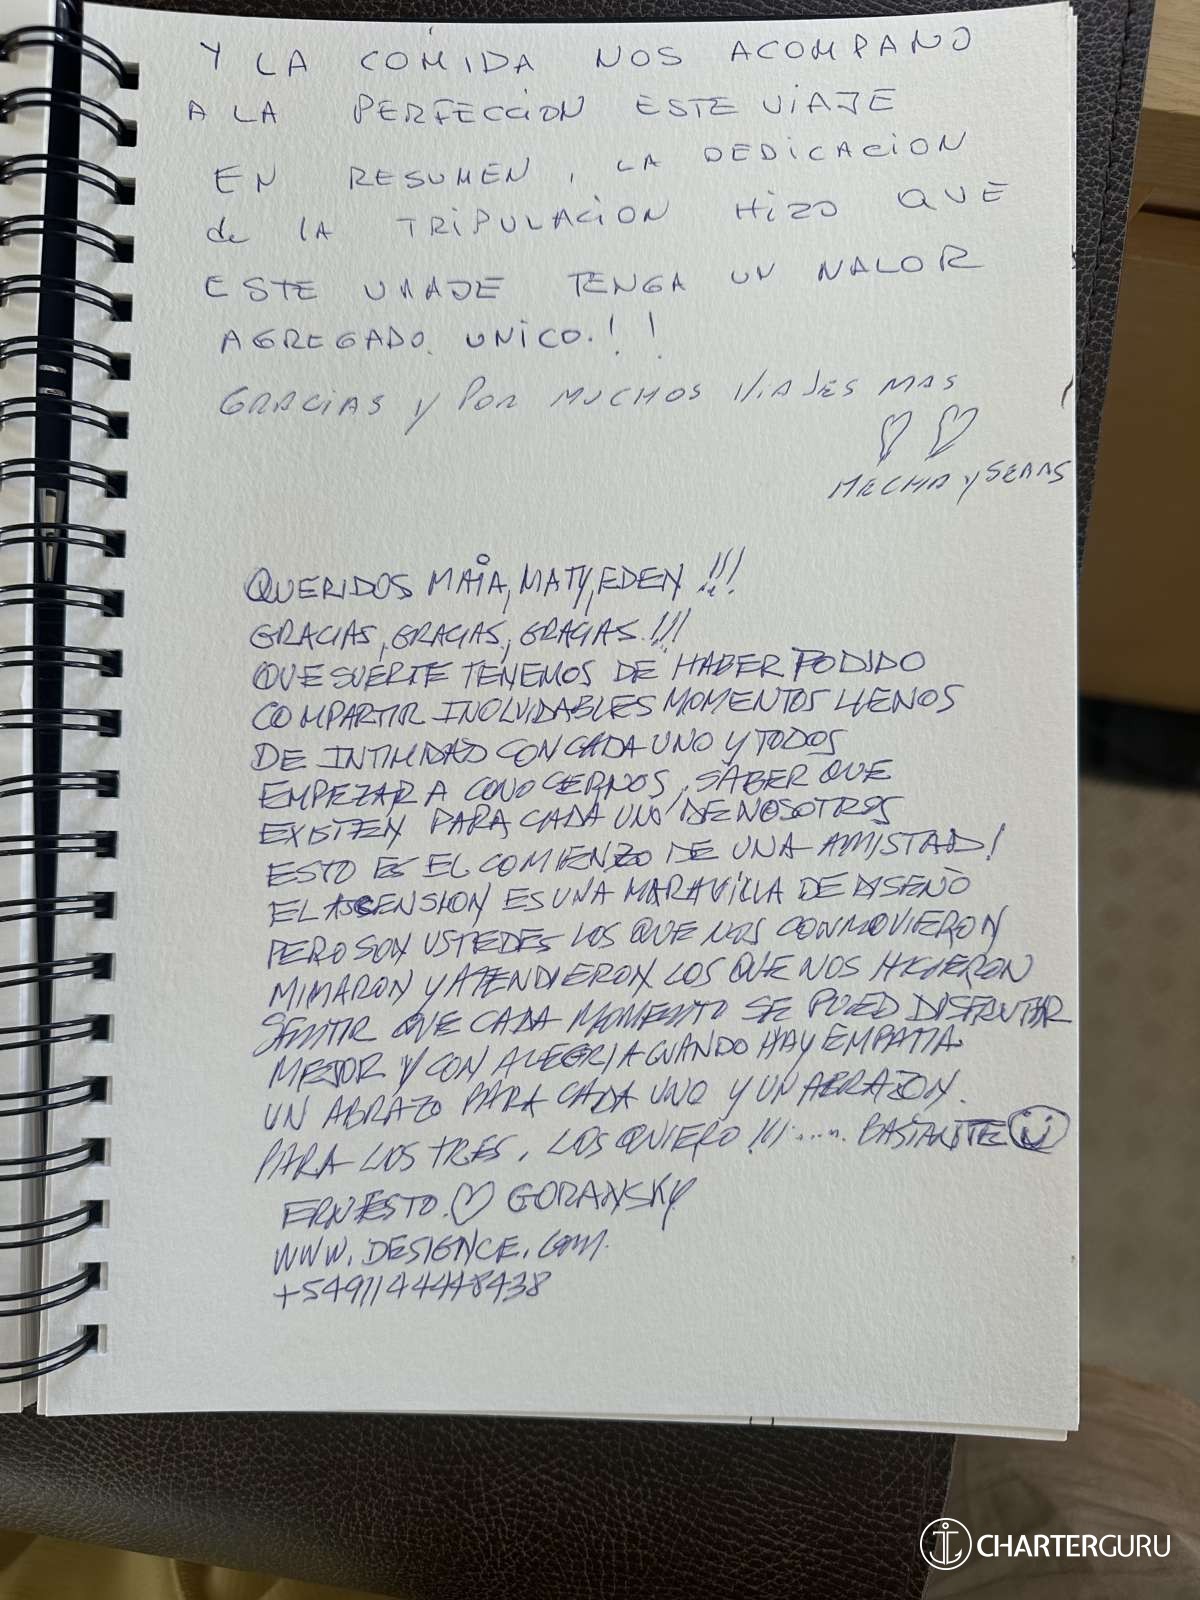 Y LA COMIDA NOS ACOMPAÑO
A LA PERFECCION ESTE VIAJE
EN RESUMEN, LA DEDICACION
de LA TRIPULACION HIZO QUE
ESTE VIAJE TENGA UN VALOR
AGREGADO UNICO!!
GRACIAS Y POR MUCHOS VIAJES MAS
MECHA Y SEBAS
QUERIDOS MAIA, MATY, EDEN !!!
GRACIAS, GRACIAS, GRACIAS !!!
QUE SUERTE TENEMOS DE HABER PODIDO
COMPARTIR INOLVIDABLES MOMENTOS LLENOS
DE INTIMIDAD CON CADA UNO Y TODOS
EMPEZAR A CONOCERNOS, SABER QUE
EXISTEN PARA CADA UNO DE NOSOTROS
ESTO ES EL COMIENZO DE UNA AMISTAD!
EL ASCENSION ES UNA MARAVILLA DE DISEÑO
PERO SON USTEDES LOS QUE NOS CONMOVIERON
MIMARON Y ATENDIERON LOS QUE NOS HICIERON
SENTIR QUE CADA MOMENTO SE PUED DISFRUTAR
MEJOR Y CON ALEGRIA CUANDO HAY EMPATIA.
UN ABRAZO PARA CADA UNO Y UN ABRAZON.
PARA LOS TRES, LOS QUIERO !!!..... BASTANTE
ERNESTO GORANSKY
WWW.DESIGNCE.com.
+5491144448438
CHARTERGURU